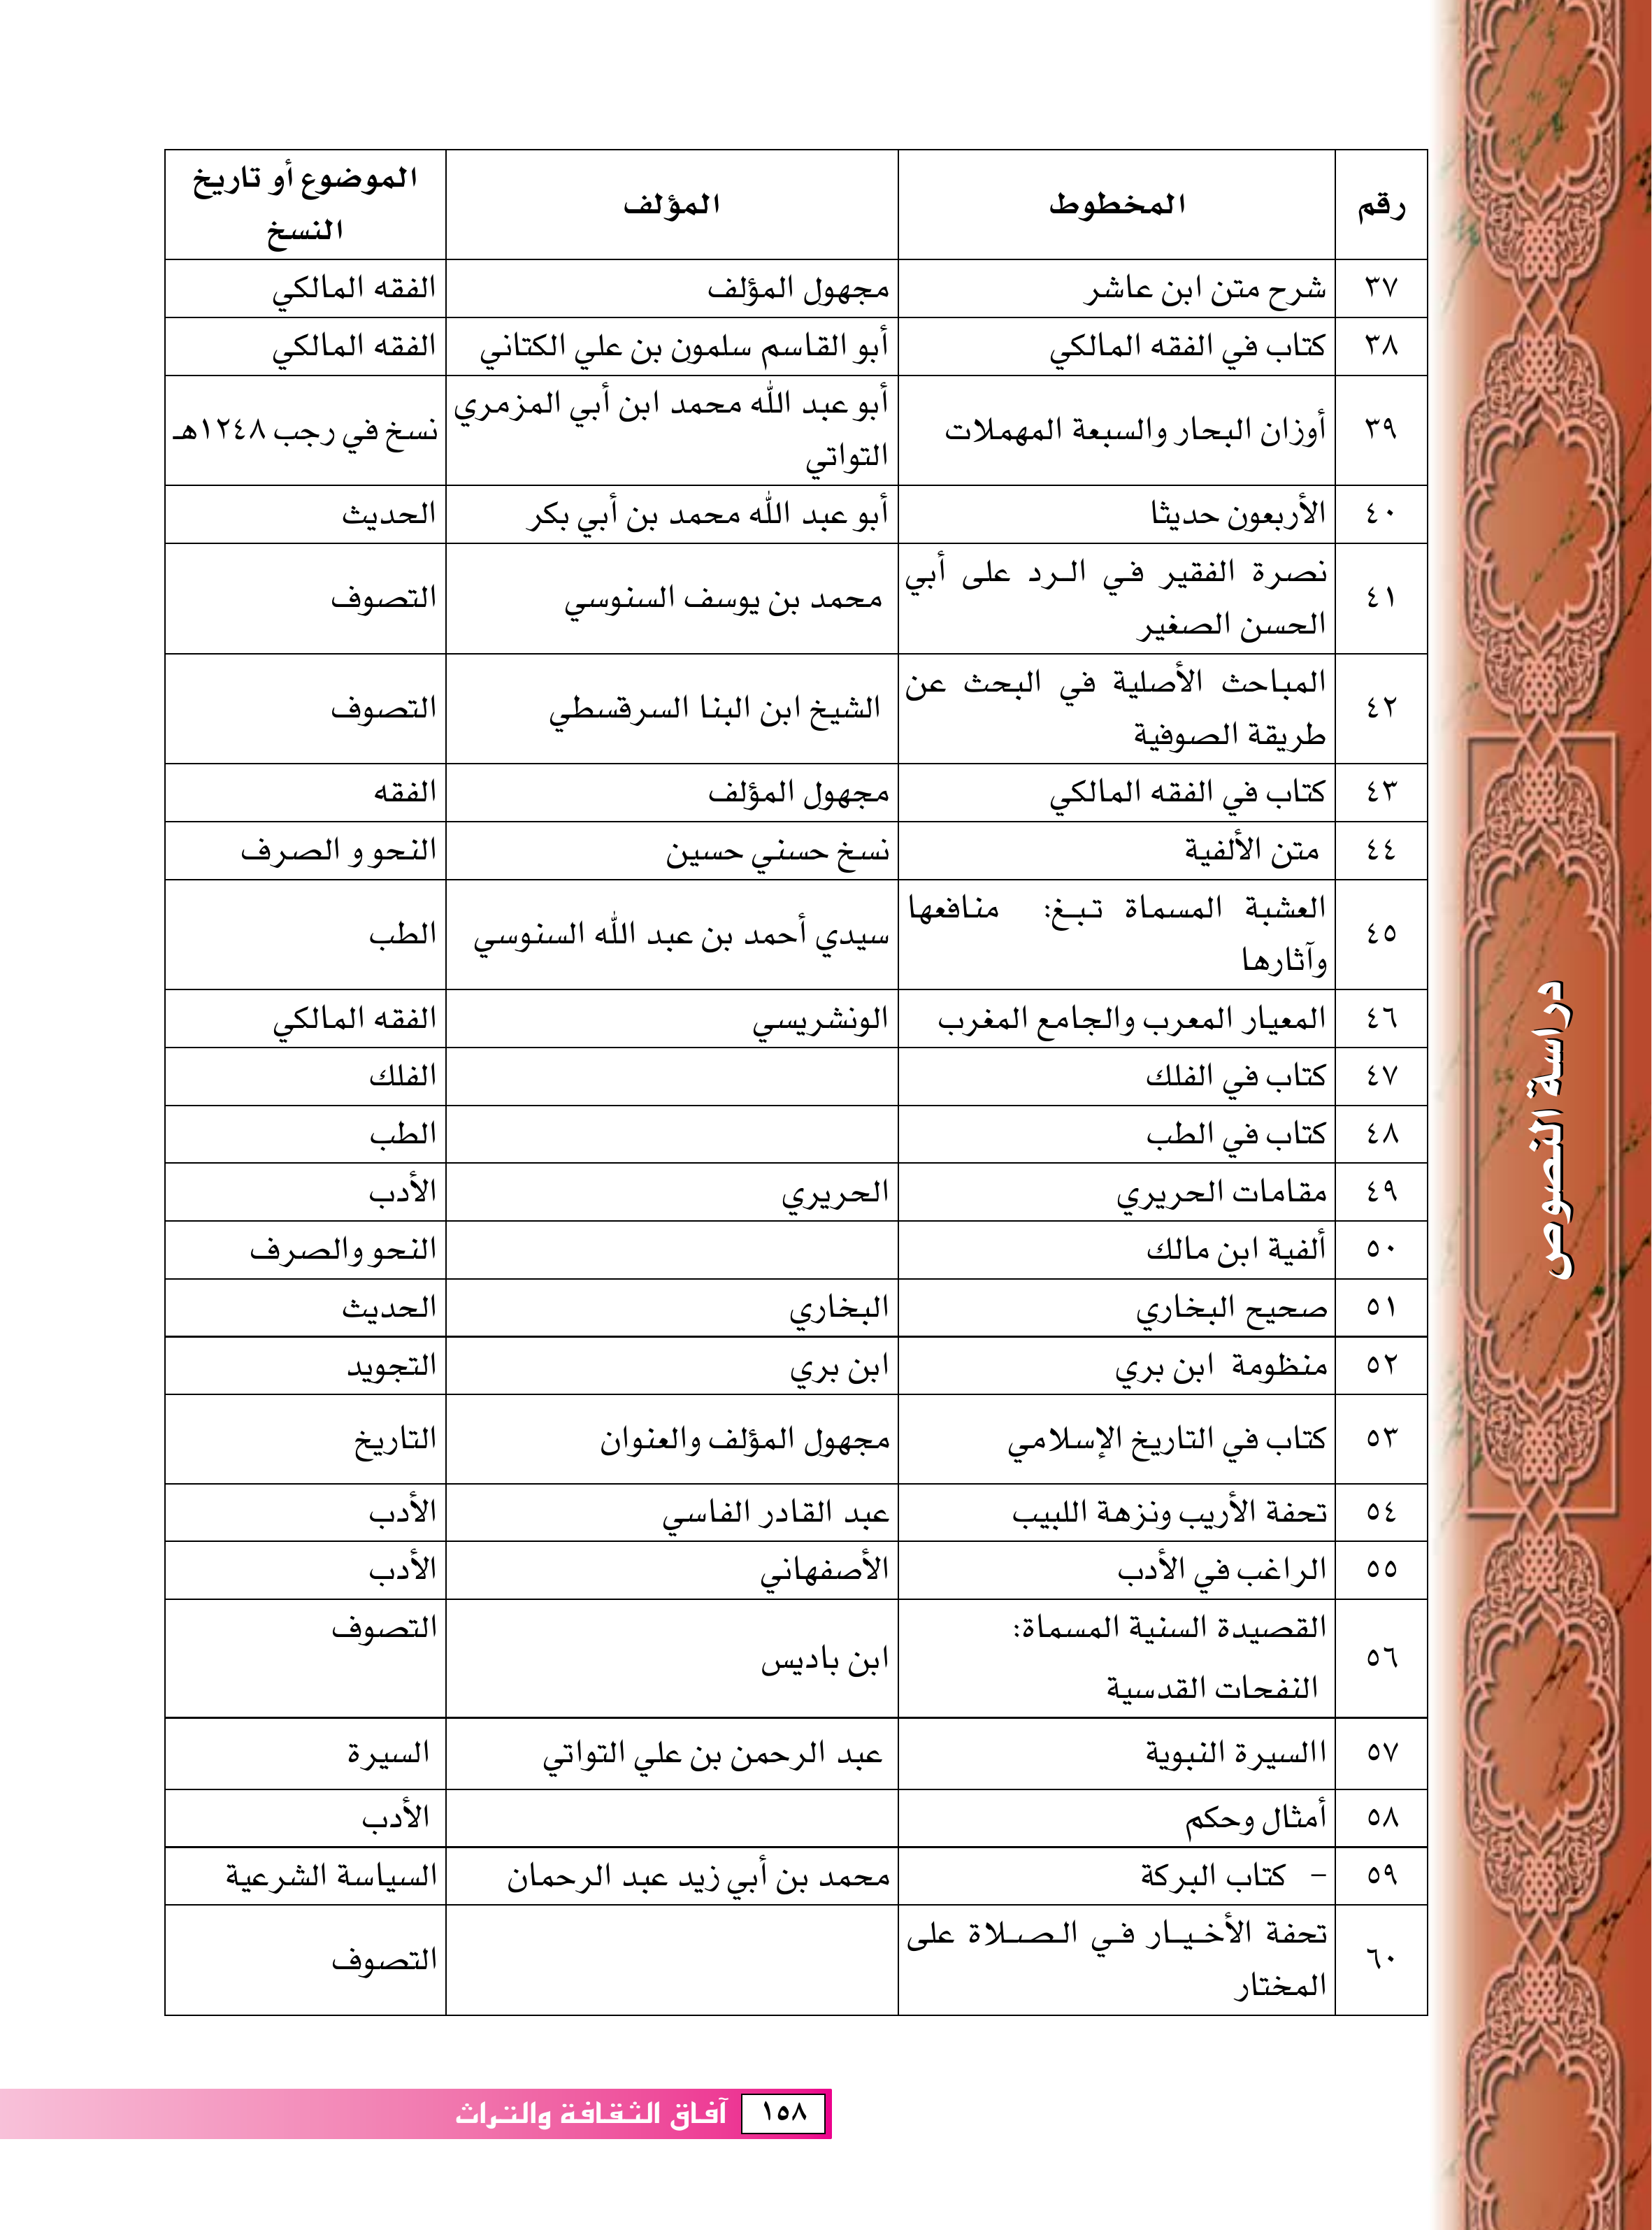 رقم المخطوط المؤلف الموضوع أو تاريخ
النسخ
٣٧ شرح متن ابن عاشر مجهول المؤلف الفقه المالكي
٣٨ كتاب في الفقه المالكي أبو القاسم سلمون بن علي الكتاني الفقه المالكي
٣٩ أوزان البحار والسبعة المهملات أبو عبد الله محمد ابن أبي المزمري
التواتي نسخ في رجب ١٢٤٨هـ
٤٠ الأربعون حديثا أبو عبد الله محمد بن أبي بكر الحديث
٤١ نصرة الفقير في الرد على أبي
الحسن الصغير محمد بن يوسف السنوسي التصوف
٤٢ المباحث الأصلية في البحث عن
طريقة الصوفية الشيخ ابن البنا السرقسطي التصوف
٤٣ كتاب في الفقه المالكي مجهول المؤلف الفقه
٤٤ متن الألفية نسخ حسني حسين النحو و الصرف
٤٥ العشبة المسماة تبغ: منافعها
وآثارها سيدي أحمد بن عبد الله السنوسي الطب
٤٦ المعيار المعرب والجامع المغرب الونشريسي الفقه المالكي
٤٧ كتاب في الفلك الفلك
٤٨ كتاب في الطب الطب
٤٩ مقامات الحريري الحريري الأدب
٥٠ ألفية ابن مالك النحو والصرف
٥١ صحيح البخاري البخاري الحديث
٥٢ منظومة ابن بري ابن بري التجويد
٥٣ كتاب في التاريخ الإسلامي مجهول المؤلف والعنوان التاريخ
٥٤ تحفة الأريب ونزهة اللبيب عبد القادر الفاسي الأدب
٥٥ الراغب في الأدب الأصفهاني الأدب
٥٦ القصيدة السنية المسماة:
النفحات القدسية ابن باديس التصوف
٥٧ االسيرة النبوية عبد الرحمن بن علي التواتي السيرة
٥٨ أمثال وحكم الأدب
٥٩ - كتاب البركة محمد بن أبي زيد عبد الرحمان السياسة الشرعية
٦٠ تحفة الأخيار في الصلاة على
المختار التصوف
دراسة النصوص
١٥٨ آفاق الثقافة والتراث